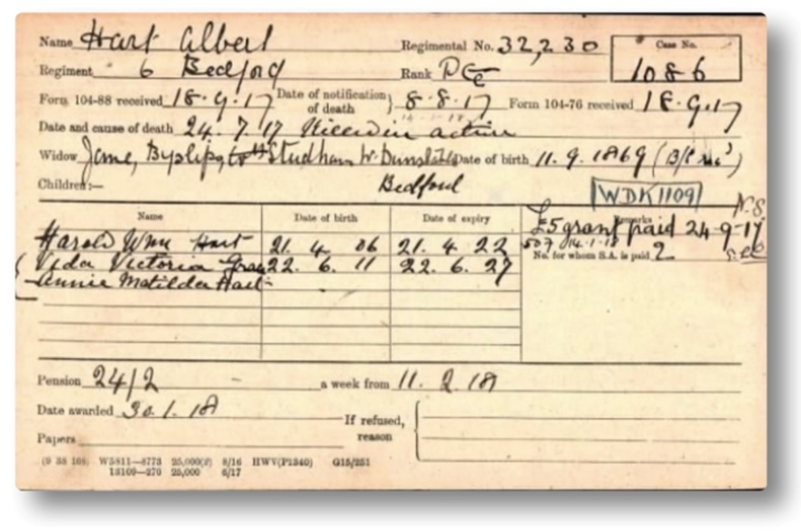 Name Hart Albert Regimental No. 32,230 Case No.
Regiment 6 Bedford Rank Pte 1086
Form 104-88 received 18.9.17 Date of notification of death 8.8.17 Form 104-76 received 18.9.17
Date and cause of death 24.7.17 Killed in action
Widow Jane, Studham Dunstable Date of birth 11.9.1869
Children:— Bedford
WDK1109
Name Date of birth Date of expiry Remarks
£5 grant paid 24-9-17
Harold Wm Hart 21. 4. 06 21. 4. 22
No. for whom S.A. is paid 2
Vida Victoria 22. 6. 11 22. 6. 27
Annie Matilda Hart
Pension 24/2 a week from 11. 2. 18
Date awarded 30.1.18 If refused, reason
Papers
(9 38 108) W5811—8773 25,000(2) 8/16 HWV(P1340) G15/251
13109—270 25,000 6/17